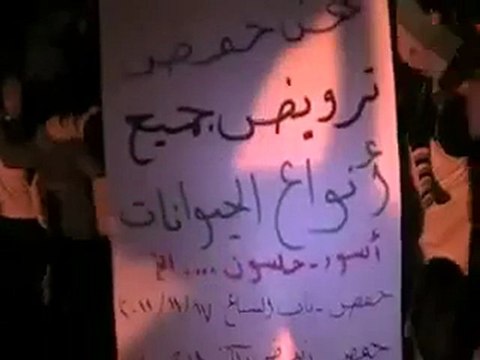 نحن حمص
ترويض جميع
أنواع الحيوانات
أسود - حلسون .... الخ
حمص - باب السباع ٢٠١١/١١/١٧
حمص